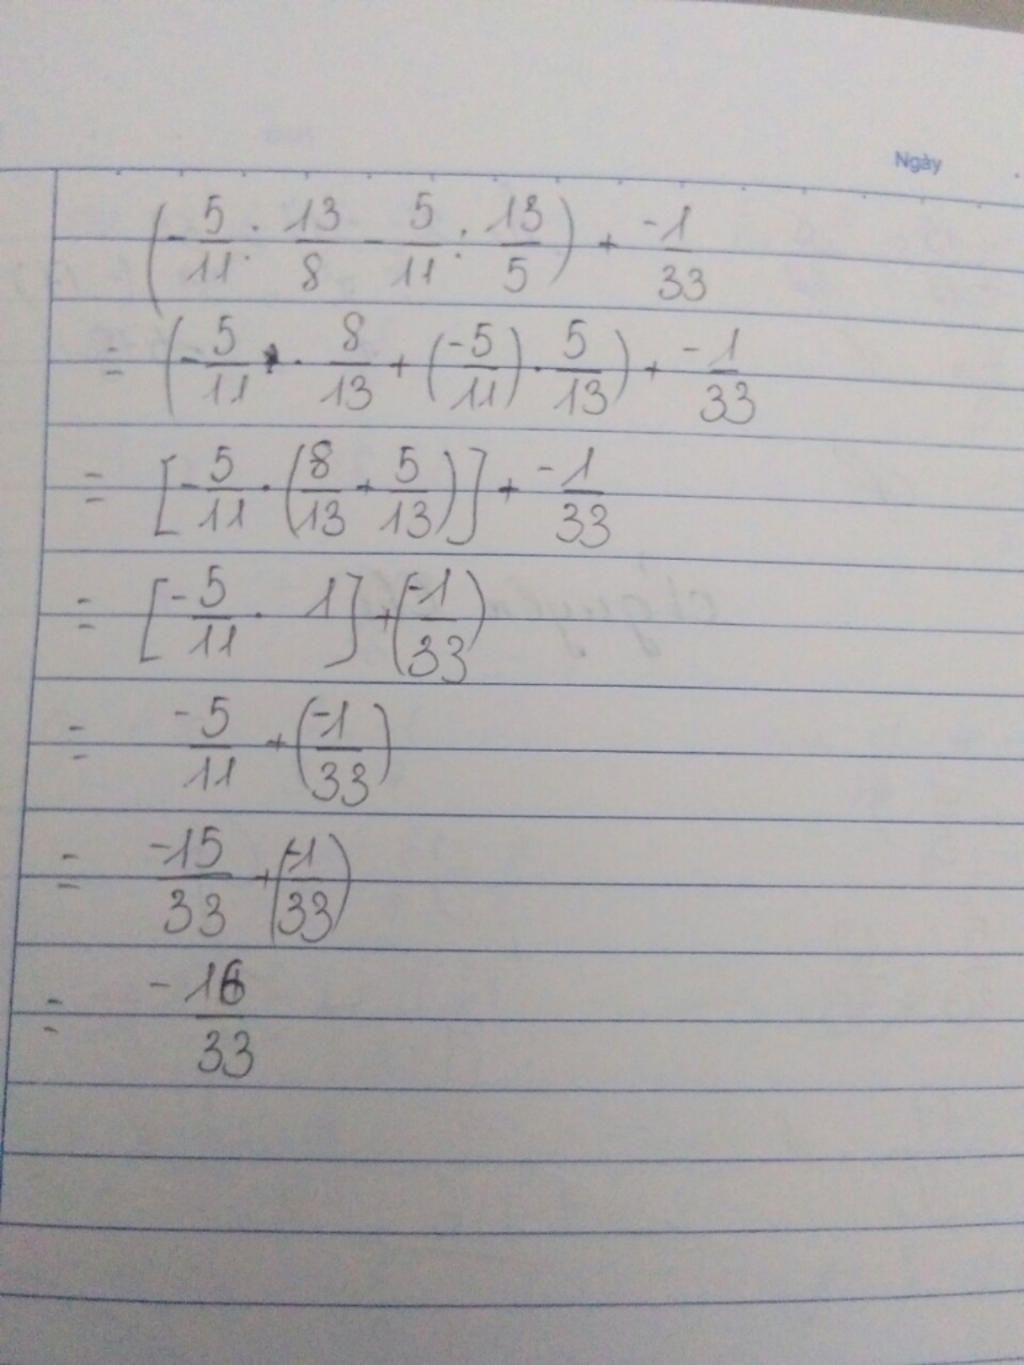 Ngày
(-5/11 : 13/8 - 5/11 : 13/5) + -1/33
= (-5/11 . 8/13 + (-5/11) . 5/13) + -1/33
= [-5/11 . (8/13 + 5/13)] + -1/33
= [-5/11 . 1] + (-1/33)
= -5/11 + (-1/33)
= -15/33 + (-1/33)
= -16/33